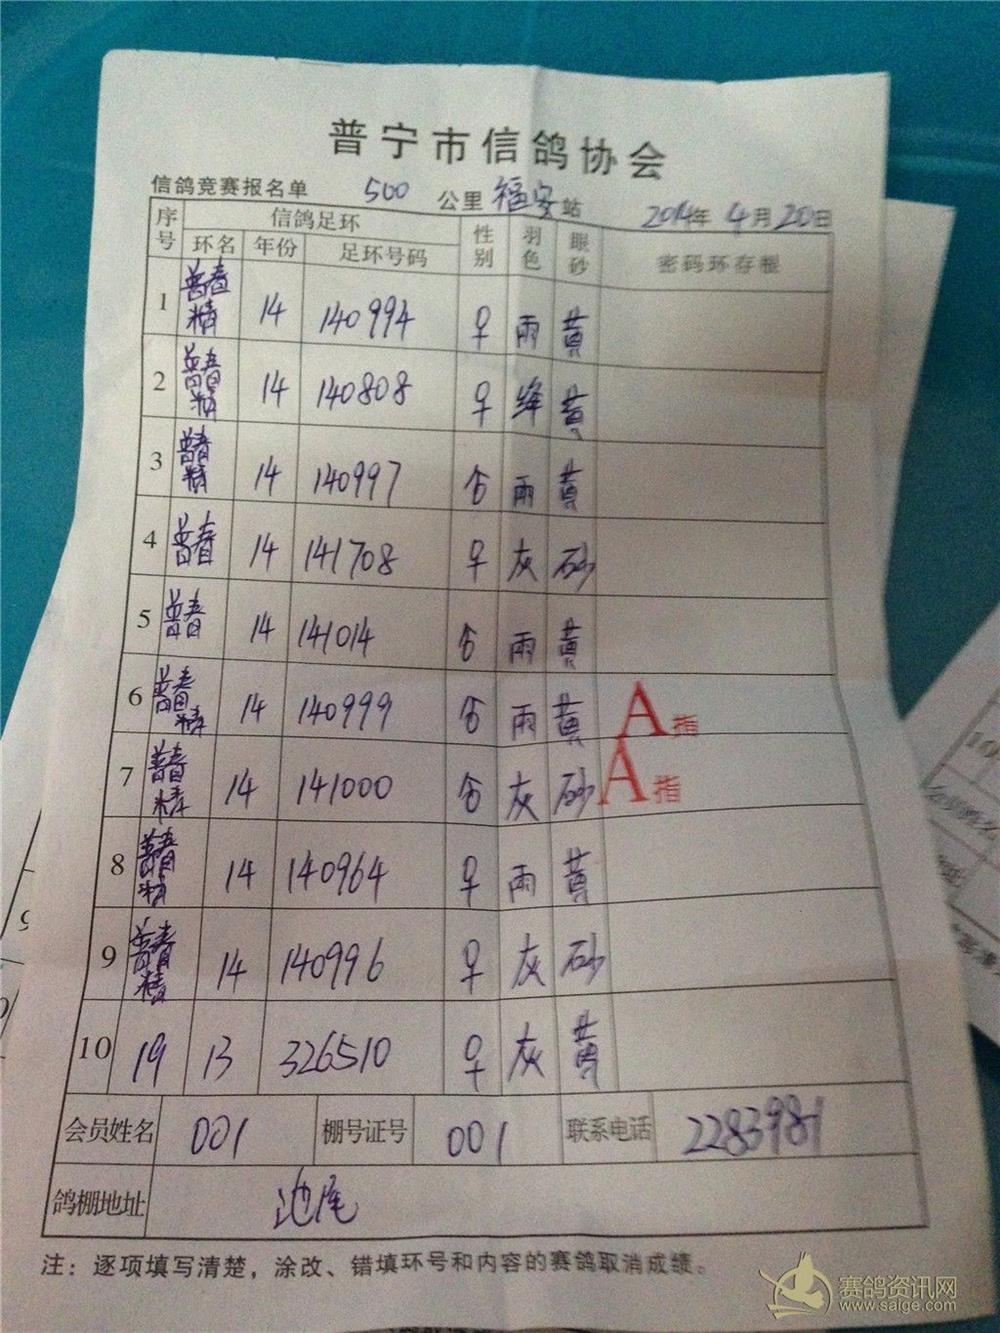 普宁市信鸽协会
信鸽竞赛报名单 500 公里 福安 站 2014年 4月 20日
序号 信鸽足环 性别 羽色 眼砂 密码环存根
环名 年份 足环号码
1 普春精 14 140994 ♀ 雨 黄
2 普春精 14 140808 ♀ 绛 黄
3 普春精 14 140997 雨 黄
4 普春 14 141708 ♀ 灰 砂
5 普春 14 141014 雨 黄
6 普春精 14 140999 雨 黄 A指
7 普春精 14 141000 灰 砂 A指
8 普春精 14 140964 ♀ 雨 黄
9 普春精 14 140996 ♀ 灰 砂
10 19 13 326510 ♀ 灰 黄
会员姓名 001 棚号证号 001 联系电话 2283981
鸽棚地址 池尾
注：逐项填写清楚，涂改、错填环号和内容的赛鸽取消成绩。
赛鸽资讯网
www.saige.com